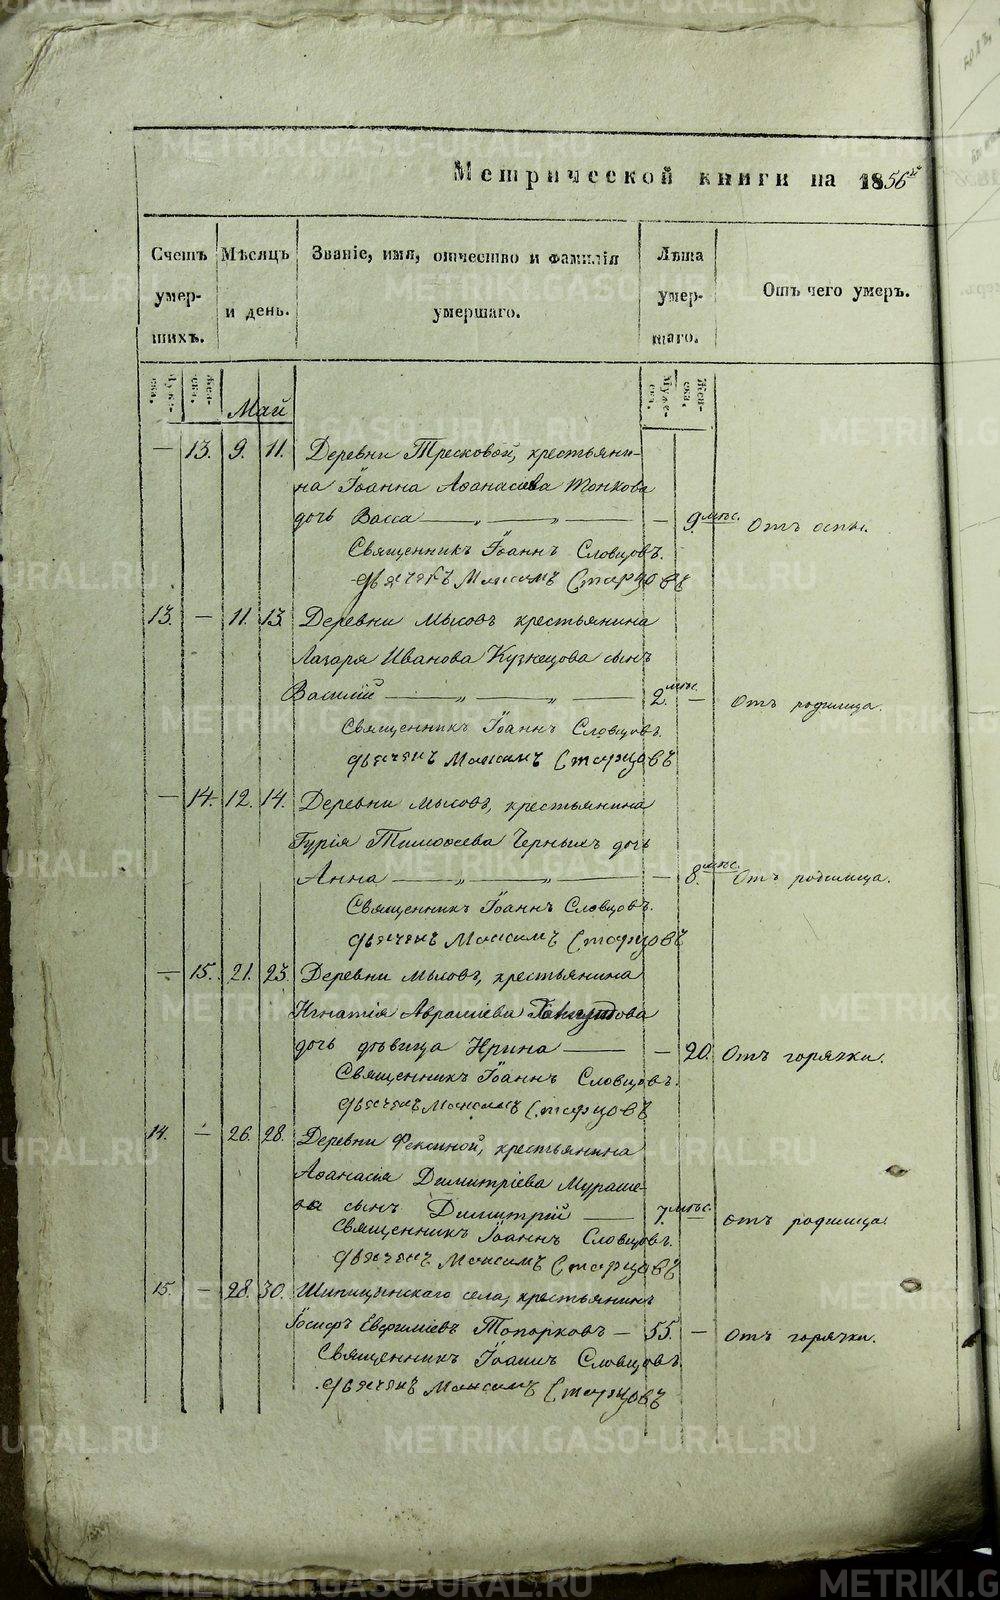 Метрической книги на 1856й
Счетъ умер- шихъ.
Мѣсяцъ и день.
Званіе, имя, отчество и фамилія умершаго.
Лѣта умер- шаго.
Отъ чего умеръ.
Муже- ска. Жен- ска. Май Муже- ска. Жен- ска.
— 13. 9. 11. Деревни Тресковой, крестьяни-
на Іоанна Аѳанасьева Тонкова
дочь Васса — „ — „ — — 9. мѣс. Отъ оспы.
Священникъ Іоаннъ Словцовъ.
Дьячекъ Максимъ Старцовъ
13. — 11. 13 Деревни Мысовъ крестьянина
Лазаря Иванова Кузнецова сынъ
Василій — „ — „ — 2. мѣс. — Отъ родимца.
Священникъ Іоаннъ Словцовъ.
Дьячекъ Максимъ Старцовъ
— 14. 12. 14. Деревни Мысовъ, крестьянина
Гурія Тимоѳеева Черныхъ дочь
Анна — „ — „ — — 8. мѣс. Отъ родимца.
Священникъ Іоаннъ Словцовъ.
Дьячекъ Максимъ Старцовъ
— 15. 21. 23. Деревни Мысовъ, крестьянина
Игнатія Авраміева
дочь дѣвица Ирина — — 20. Отъ горячки.
Священникъ Іоаннъ Словцовъ.
Дьячекъ Максимъ Старцовъ
14. — 26. 28. Деревни Фокиной, крестьянина
Аѳанасія Димитріева Мураше-
ва сынъ Димитрій — 7. мѣс. — отъ родимца.
Священникъ Іоаннъ Словцовъ.
Дьячекъ Максимъ Старцовъ
15. — 28. 30. Шипицынскаго села, крестьянинъ
Іосифъ Евфиміевъ Топорковъ — 55. — Отъ горячки.
Священникъ Іоаннъ Словцовъ.
Дьячекъ Максимъ Старцовъ
METRIKI.GASO-URAL.RU